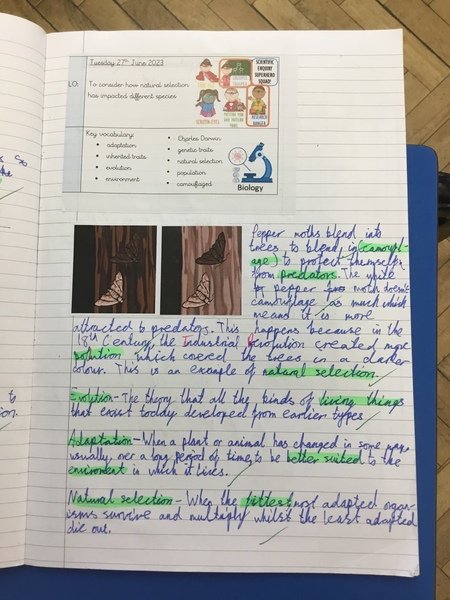 Tuesday 27th June 2023
LO:
To consider how natural selection
has impacted different species
SCIENTIFIC
ENQUIRY
SUPERHERO
SQUAD!
Key vocabulary:
• adaptation
• inherited traits
• evolution
• environment
• Charles Darwin
• genetic traits
• natural selection
• population
• camouflaged
Biology
Pepper moths blend into
trees to blend in (camoufl-
age) to protect themself
from predators. The white
or pepper moth doesn't
camouflage as much which
means it is more
attracted to predators. This happens because in the
18th Century, the Industrial Revolution created more
polution which covered the trees in a darker
colour. This is an example of natural selection.
Evolution - The theory that all the kinds of living things
that exist today developed from earlier types.
Adaptation - When a plant or animal has changed in some way,
usually over a long period of time, to be better suited to the
enviroment in which it lives.
Natural selection - When the fittest most adapted organ-
isms survive and multiply whilst the least adapted
die out.